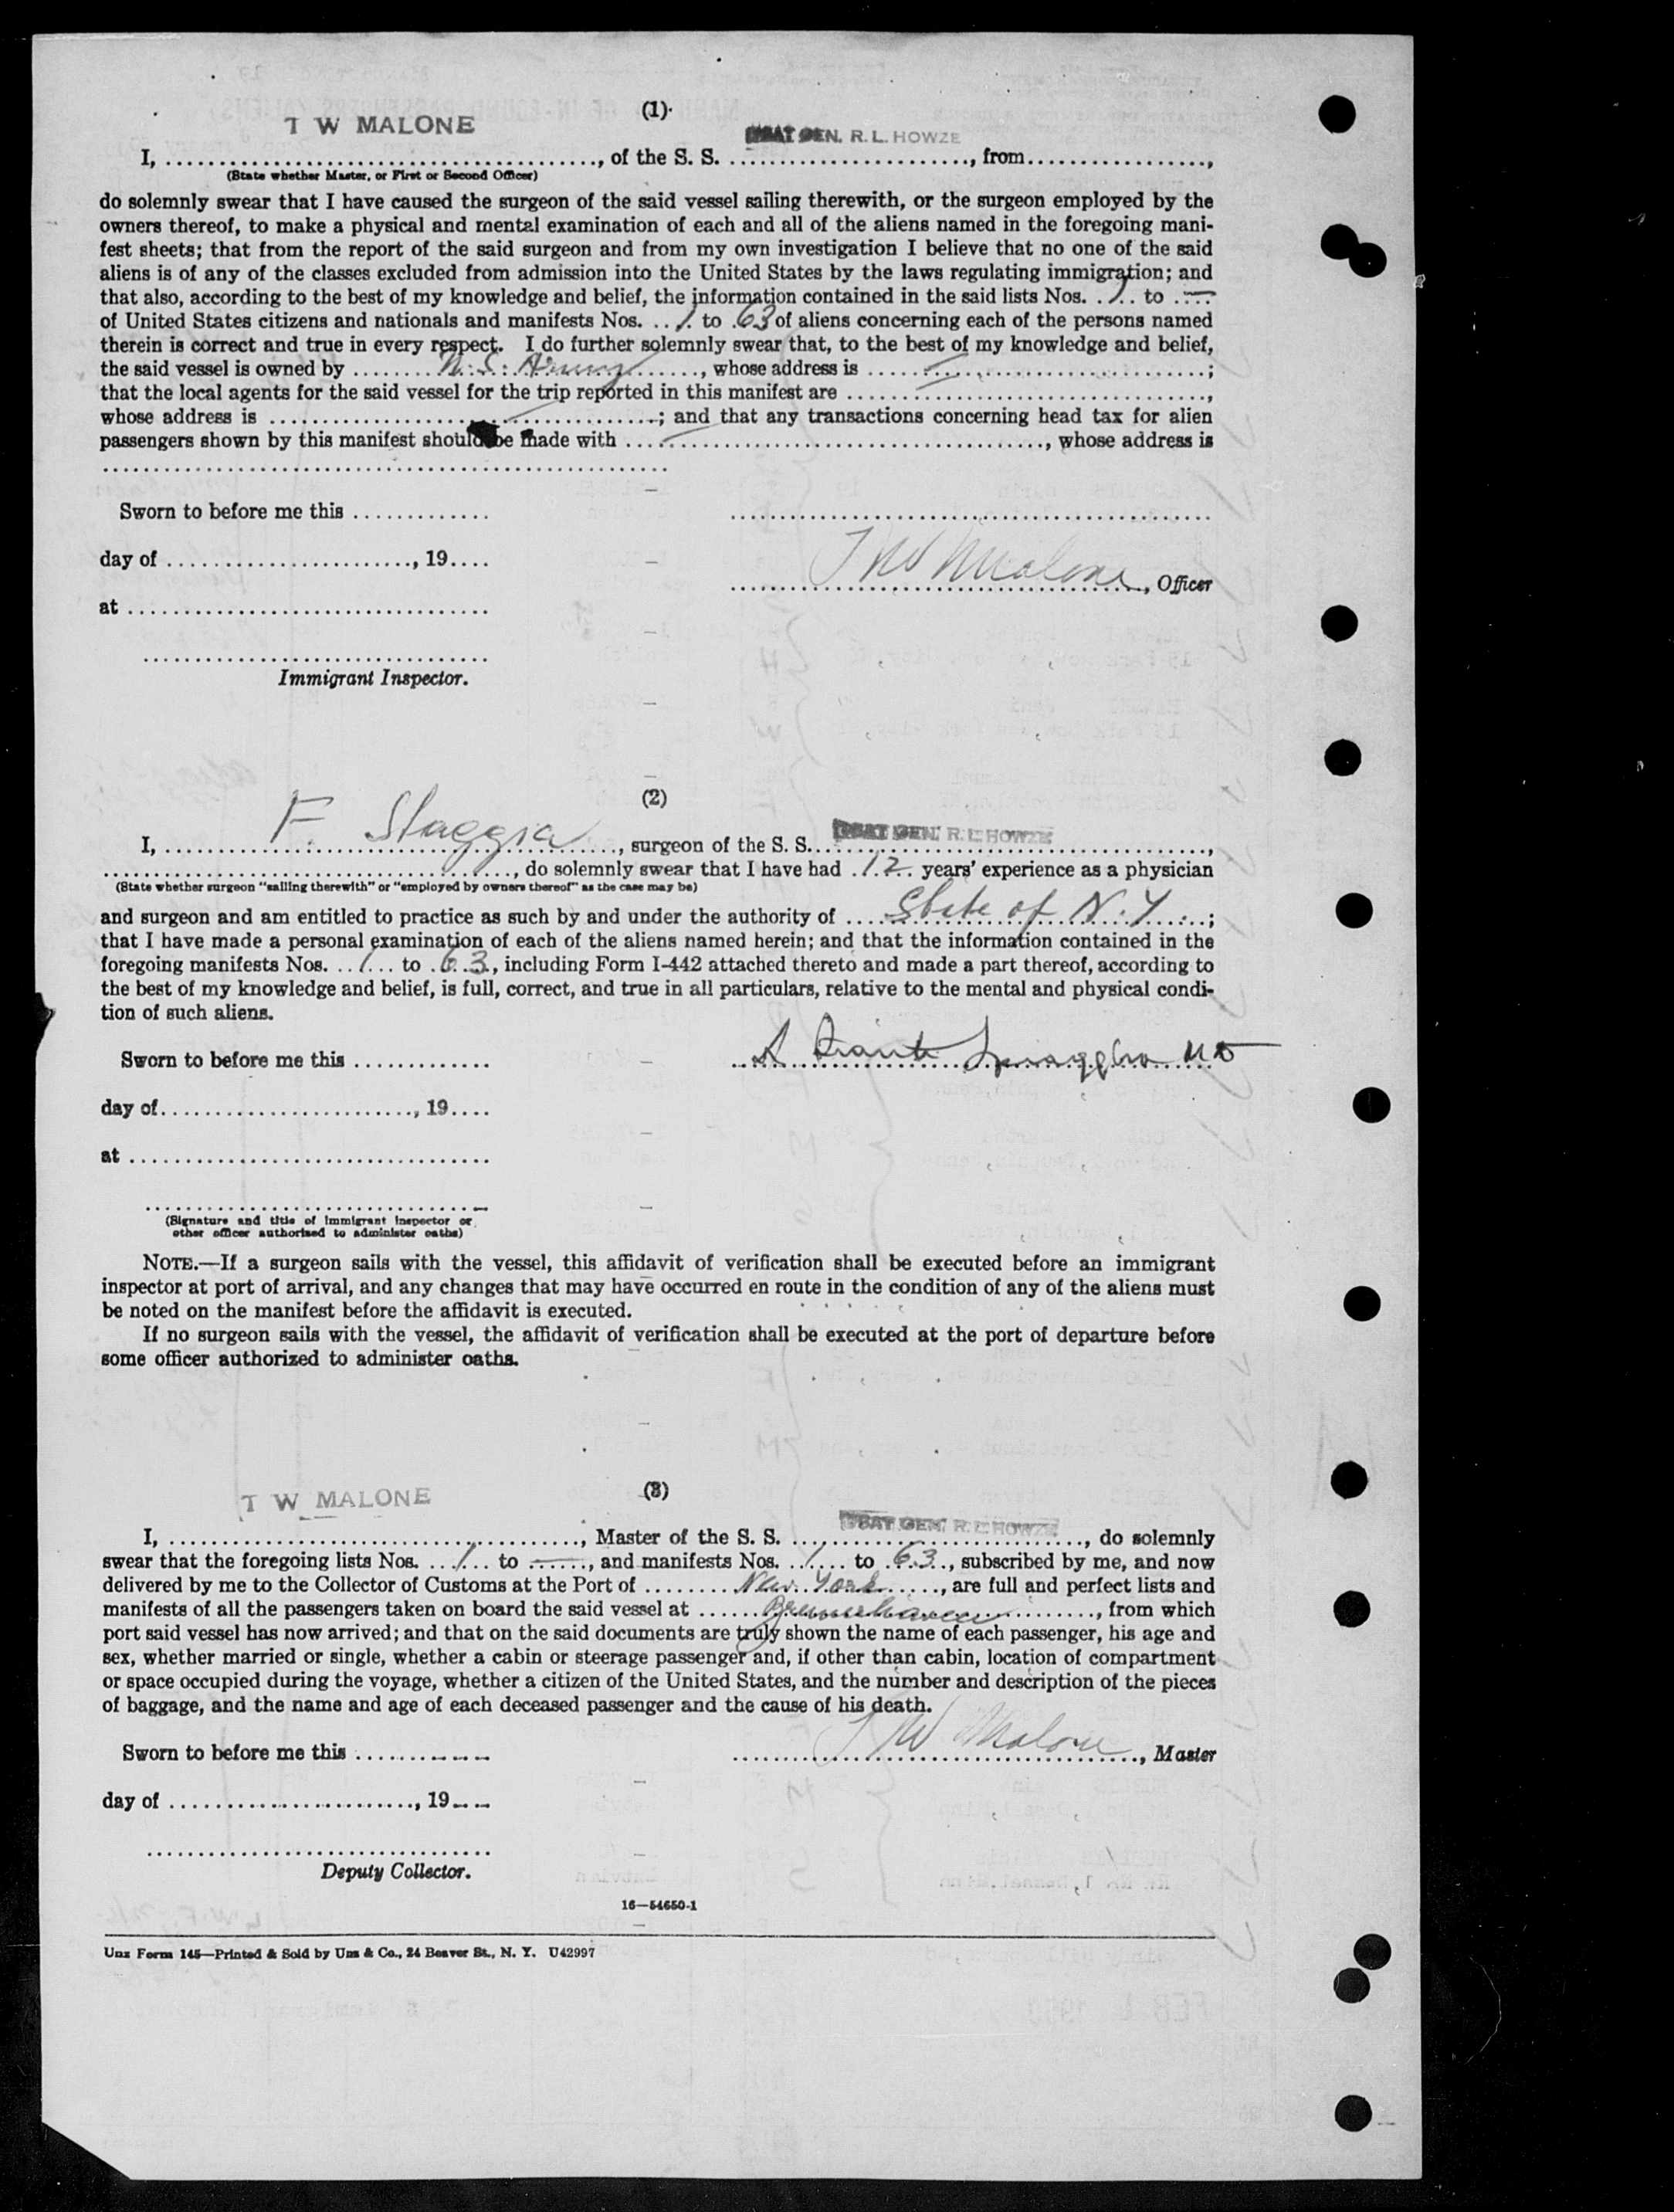 (1)
T W MALONE
USAT GEN. R. L. HOWZE
I, ........................................, of the S. S. ........................, from..................,
(State whether Master, or First or Second Officer)
do solemnly swear that I have caused the surgeon of the said vessel sailing therewith, or the surgeon employed by the
owners thereof, to make a physical and mental examination of each and all of the aliens named in the foregoing mani-
fest sheets; that from the report of the said surgeon and from my own investigation I believe that no one of the said
aliens is of any of the classes excluded from admission into the United States by the laws regulating immigration; and
that also, according to the best of my knowledge and belief, the information contained in the said lists Nos. 1 to —
of United States citizens and nationals and manifests Nos. 1 to 63 of aliens concerning each of the persons named
therein is correct and true in every respect. I do further solemnly swear that, to the best of my knowledge and belief,
the said vessel is owned by ........U.S. Army........, whose address is ................................;
that the local agents for the said vessel for the trip reported in this manifest are ................................,
whose address is ........................................; and that any transactions concerning head tax for alien
passengers shown by this manifest should be made with ........................................, whose address is
............................................................
Sworn to before me this .............
day of ........................, 19....
T W Malone, Officer
at ..................................
Immigrant Inspector.
(2)
I, F. Staggia, surgeon of the S. S. USAT GEN. R. L. HOWZE,
........................................, do solemnly swear that I have had 12 years' experience as a physician
(State whether surgeon "sailing therewith" or "employed by owners thereof" as the case may be)
and surgeon and am entitled to practice as such by and under the authority of State of N.Y. ;
that I have made a personal examination of each of the aliens named herein; and that the information contained in the
foregoing manifests Nos. 1 to 63, including Form I-442 attached thereto and made a part thereof, according to
the best of my knowledge and belief, is full, correct, and true in all particulars, relative to the mental and physical condi-
tion of such aliens.
Sworn to before me this .............
day of........................, 19....
at ..................................
(Signature and title of immigrant inspector or
other officer authorized to administer oaths)
NOTE.—If a surgeon sails with the vessel, this affidavit of verification shall be executed before an immigrant
inspector at port of arrival, and any changes that may have occurred en route in the condition of any of the aliens must
be noted on the manifest before the affidavit is executed.
If no surgeon sails with the vessel, the affidavit of verification shall be executed at the port of departure before
some officer authorized to administer oaths.
(3)
T W MALONE
USAT GEN. R. L. HOWZE
I, ........................................, Master of the S. S. ................................, do solemnly
swear that the foregoing lists Nos. 1 to —, and manifests Nos. 1 to 63, subscribed by me, and now
delivered by me to the Collector of Customs at the Port of New York, are full and perfect lists and
manifests of all the passengers taken on board the said vessel at Bremerhaven, from which
port said vessel has now arrived; and that on the said documents are truly shown the name of each passenger, his age and
sex, whether married or single, whether a cabin or steerage passenger and, if other than cabin, location of compartment
or space occupied during the voyage, whether a citizen of the United States, and the number and description of the pieces
of baggage, and the name and age of each deceased passenger and the cause of his death.
Sworn to before me this .............
T W Malone, Master
day of ........................, 19....
Deputy Collector.
16—54650-1
Unz Form 145—Printed & Sold by Unz & Co., 24 Beaver St., N. Y. U42997